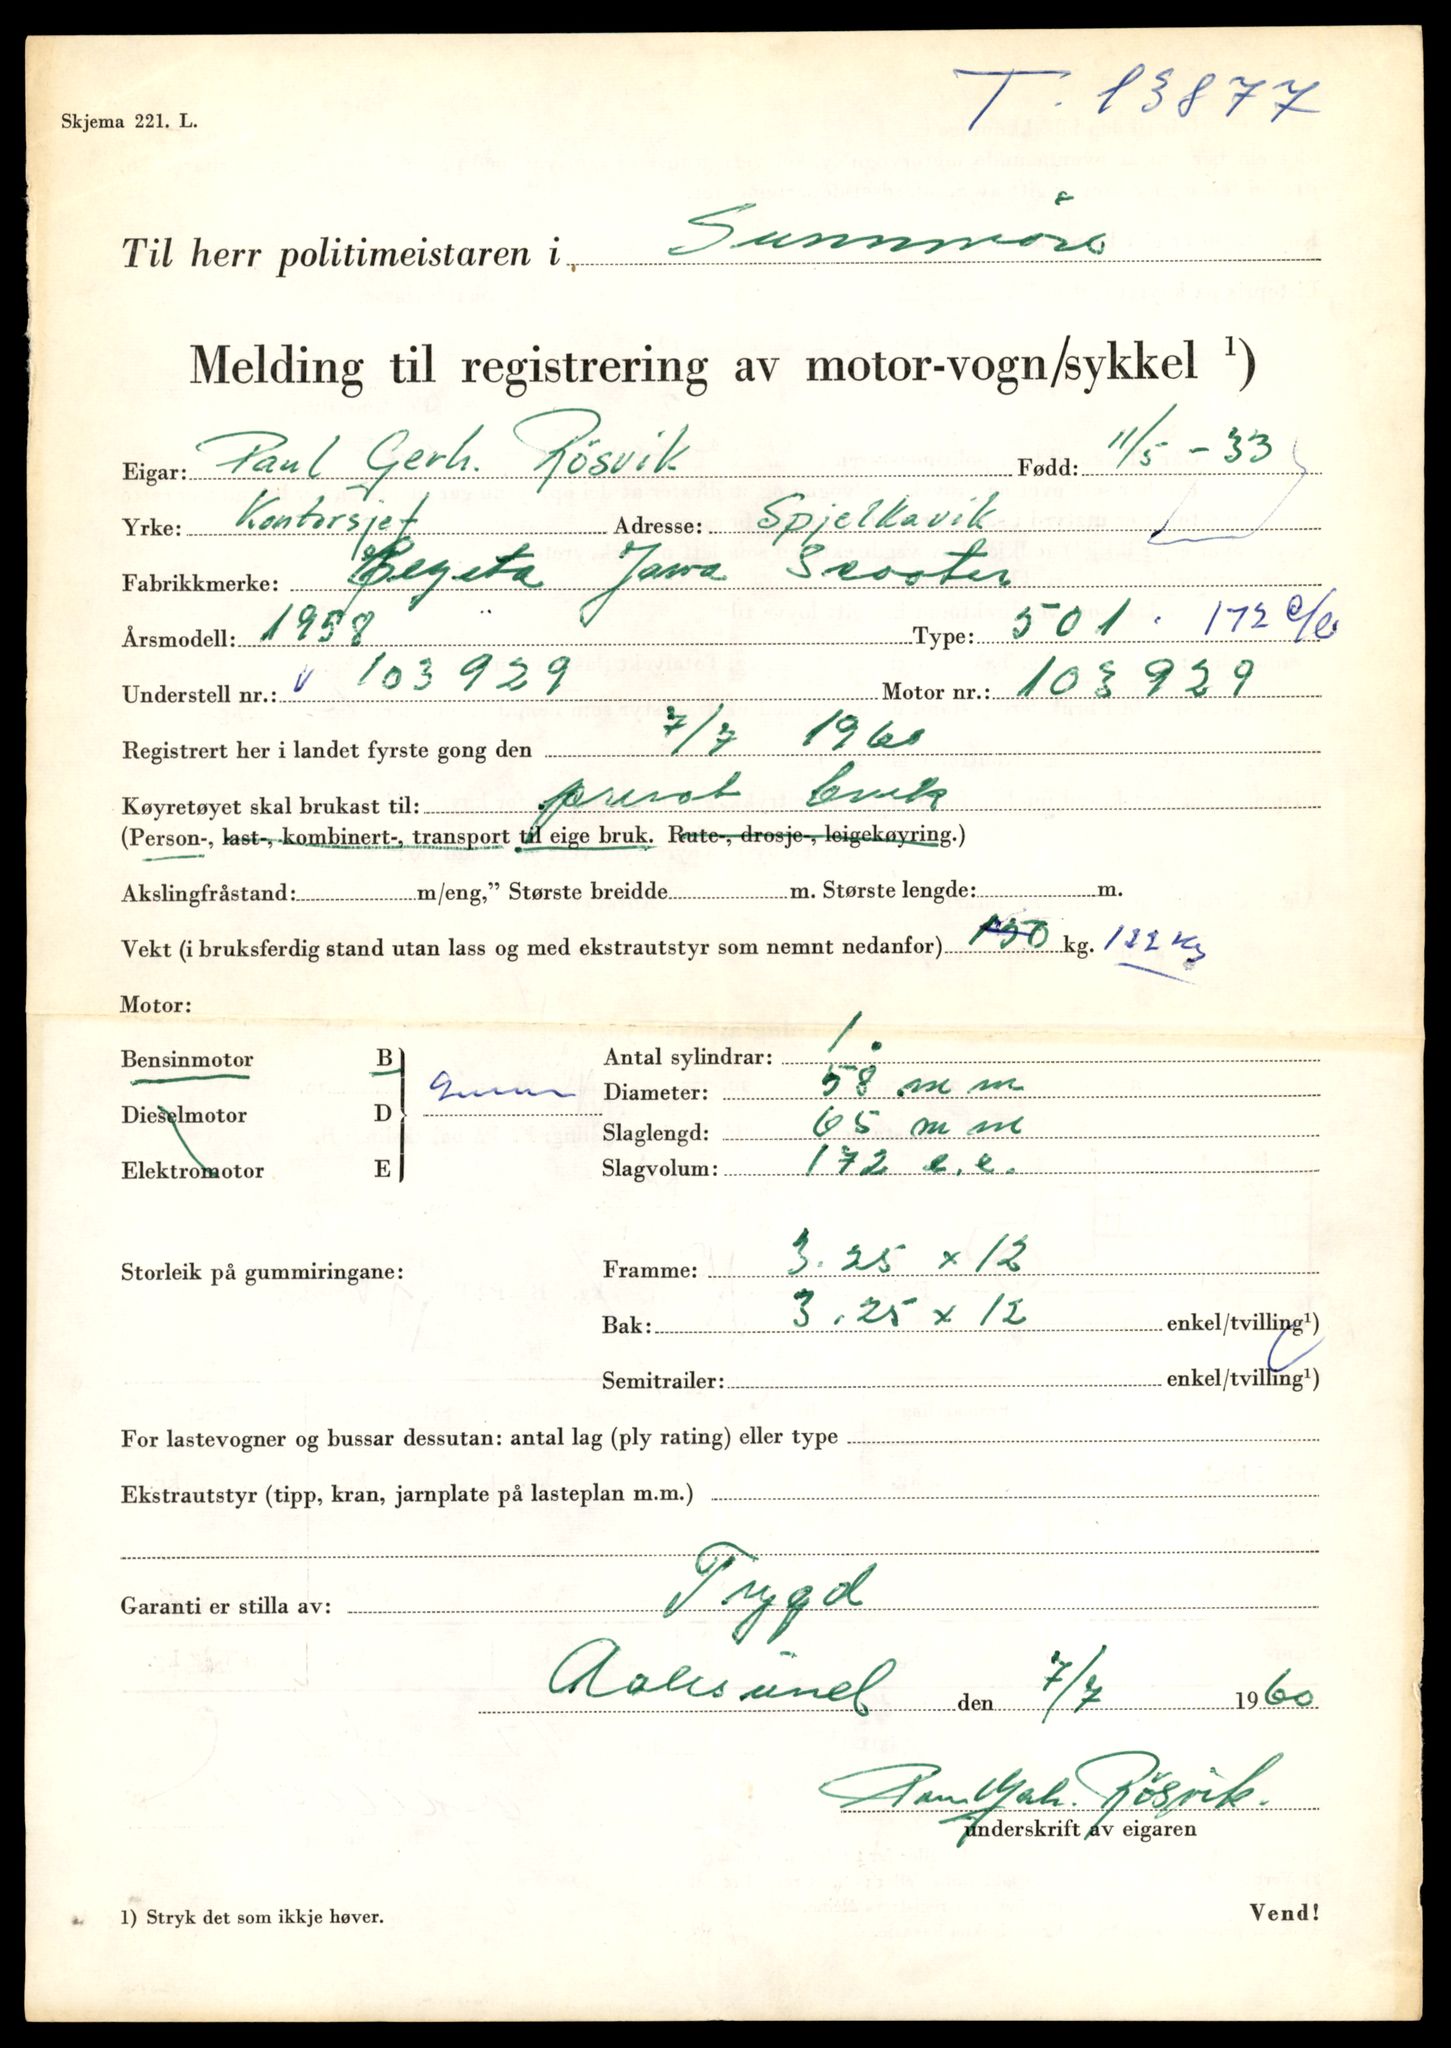 T. 13877
Skjema 221. L.
Til herr politimeistaren i Sunnmöre
Melding til registrering av motor-vogn/sykkel ¹)
Eigar: Paul Gerh. Rösvik Fødd: 11/5 - 33
Yrke: Kontorsjef Adresse: Spjelkavik
Fabrikkmerke: Cezeta Jawa Scooter
Årsmodell: 1958 Type: 501. 172 c/c
Understell nr.: v 103929 Motor nr.: 103929
Registrert her i landet fyrste gong den 7/7 1960
Køyretøyet skal brukast til: privat bruk
(Person-, last-, kombinert-, transport til eige bruk. Rute-, drosje-, leigekøyring.)
Akslingfråstand: m/eng,” Største breidde m. Største lengde: m.
Vekt (i bruksferdig stand utan lass og med ekstrautstyr som nemnt nedanfor) 150 kg. 122 kg
Motor:
Bensinmotor B Antal sylindrar: 1.
Diameter: 58 mm
Dieselmotor D Slaglengd: 65 mm
Elektromotor E Slagvolum: 172 c.c.
Storleik på gummiringane: Framme: 3.25 x 12
Bak: 3.25 x 12 enkel/tvilling¹)
Semitrailer: enkel/tvilling¹)
For lastevogner og bussar dessutan: antal lag (ply rating) eller type
Ekstrautstyr (tipp, kran, jarnplate på lasteplan m.m.)
Garanti er stilla av: Trygd
Aalesund den 7/7 1960
Paul Gerh. Rösvik.
underskrift av eigaren
1) Stryk det som ikkje høver. Vend!